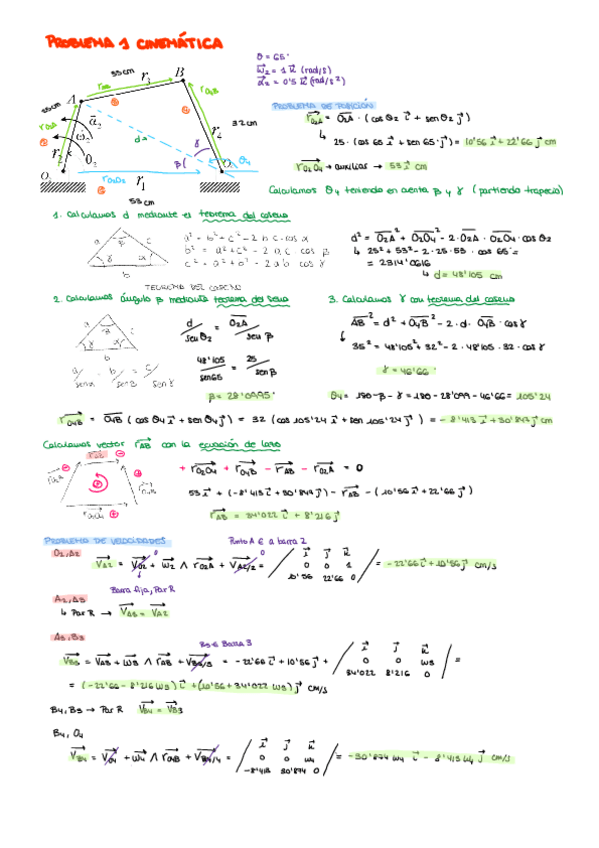 PROBLEMA 1 CINEMÁTICA
θ = 65°
ω₂ = 1 k (rad/s)
α₂ = 0'5 k (rad/s²)
35 cm
r₃
B
A
25 cm
32 cm
r₂
r₄
d
θ₂
β
γ
θ₄
r₁
53 cm
PROBLEMA DE POSICIÓN
r₀₂A = O₂A · (cos θ₂ i + sen θ₂ j)
↳ 25 · (cos 65 i + sen 65 j) = 10'56 i + 22'66 j cm
r₀₂₀₄ → auxiliar → 53 i cm
Calculamos θ₄ teniendo en cuenta β y γ (partiendo trapecio)
1. Calculamos d mediante el teorema del coseno
a² = b² + c² - 2 b c · cos α
b² = a² + c² - 2 a c · cos β
c² = a² + b² - 2 a b cos γ
TEOREMA DEL COSENO
d² = O₂A² + O₂O₄² - 2 · O₂A · O₂O₄ · cos θ₂
↳ 25² + 53² - 2 · 25 · 53 · cos 65 =
= 2314'0616
↳ d = 48'105 cm
2. Calculamos ángulo β mediante teorema del seno
a / sen α = b / sen β = c / sen γ
d / sen θ₂ = O₂A / sen β
48'105 / sen 65 = 25 / sen β
β = 28'0995°
3. Calculamos γ con teorema del coseno
AB² = d² + O₄B² - 2 · d · O₄B · cos γ
35² = 48'105² + 32² - 2 · 48'105 · 32 · cos γ
γ = 46'66°
θ₄ = 180 - β - γ = 180 - 28'099 - 46'66 = 105'24
r₀₄B = O₄B (cos θ₄ i + sen θ₄ j) = 32 (cos 105'24 i + sen 105'24 j) = -8'413 i + 30'874 j cm
Calculamos vector rAB con la ecuación de lazo
+ r₀₂₀₄ + r₀₄B - rAB - r₀₂A = 0
53 i + (-8'413 i + 30'874 j) - rAB - (10'56 i + 22'66 j)
rAB = 34'022 i + 8'216 j
PROBLEMA DE VELOCIDADES
Punto A ∈ a barra 2
O₂, A₂
VA₂ = VO₂ + ω₂ ∧ r₀₂A + VA₂/₂ = / i j k / 0 0 1 / 10'56 22'66 0 / = -22'66 i + 10'56 j cm/s
Barra fija, Par R
A₂, A₃
↳ Par R → VA₃ = VA₂
A₃, B₃
B₃ ∈ Barra 3
VB₃ = VA₃ + ω₃ ∧ rAB + VB₃/₃ = -22'66 i + 10'56 j + / i j k / 0 0 ω₃ / 34'022 8'216 0 / =
= (-22'66 - 8'216 ω₃) i + (10'56 + 34'022 ω₃) j cm/s
B₄, B₃ → Par R VB₄ = VB₃
B₄, O₄
VB₄ = VO₄ + ω₄ ∧ r₀₄B + VB₄/₄ = / i j k / 0 0 ω₄ / -8'413 30'874 0 / = -30'874 ω₄ i - 8'413 ω₄ j cm/s